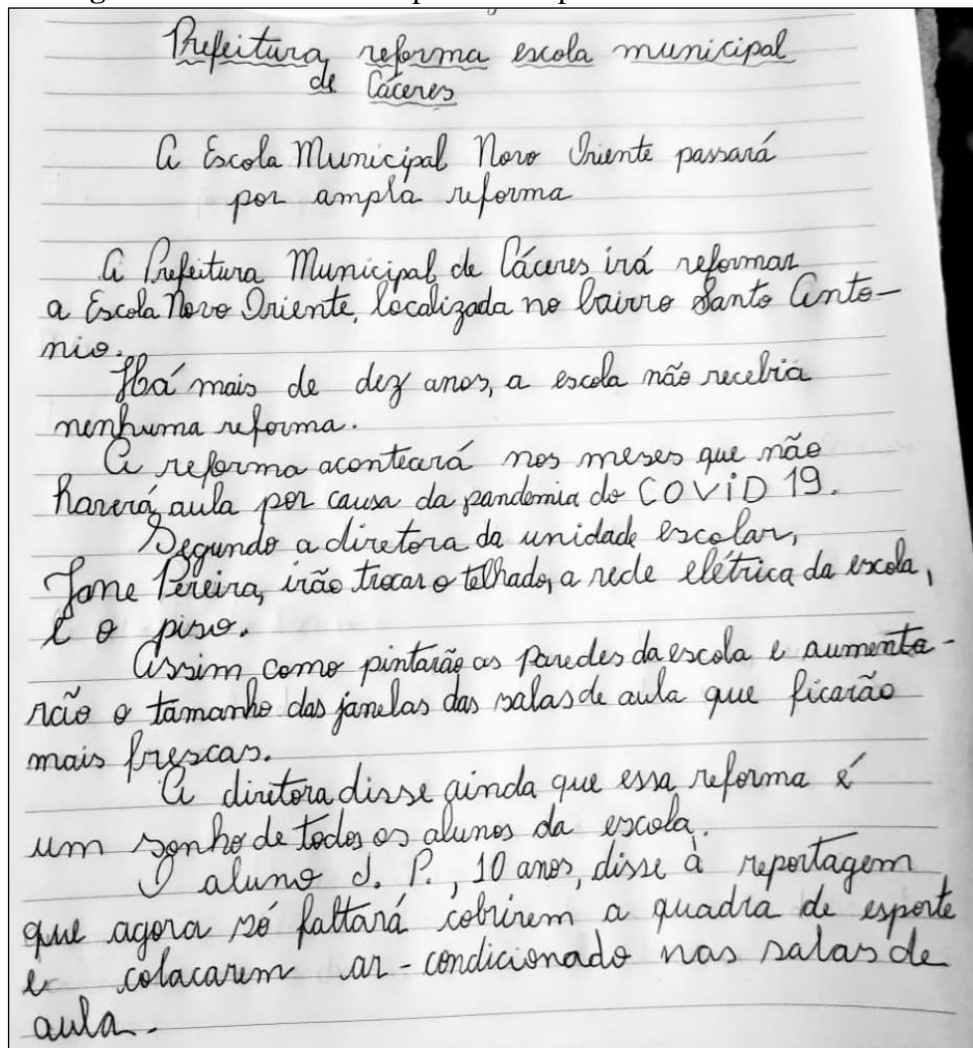 Prefeitura reforma escola municipal
de Cáceres
A Escola Municipal Novo Oriente passará
por ampla reforma
A Prefeitura Municipal de Cáceres irá reformar
a Escola Novo Oriente, localizada no bairro Santo Anto-
nio.
Há mais de dez anos, a escola não recebia
nenhuma reforma.
A reforma aconteará nos meses que não
haverá aula por causa da pandemia do COViD 19.
Segundo a diretora da unidade escolar,
Jane Pereira, irão trocar o telhado, a rede elétrica da escola,
e o piso.
Assim como pintarão as paredes da escola e aumenta-
rão o tamanho das janelas das salas de aula que ficarão
mais frescas.
A diretora disse ainda que essa reforma é
um sonho de todos os alunos da escola.
O aluno J. P., 10 anos, disse à reportagem
que agora só faltará cobrirem a quadra de esporte
e colacarem ar-condicionado nas salas de
aula.